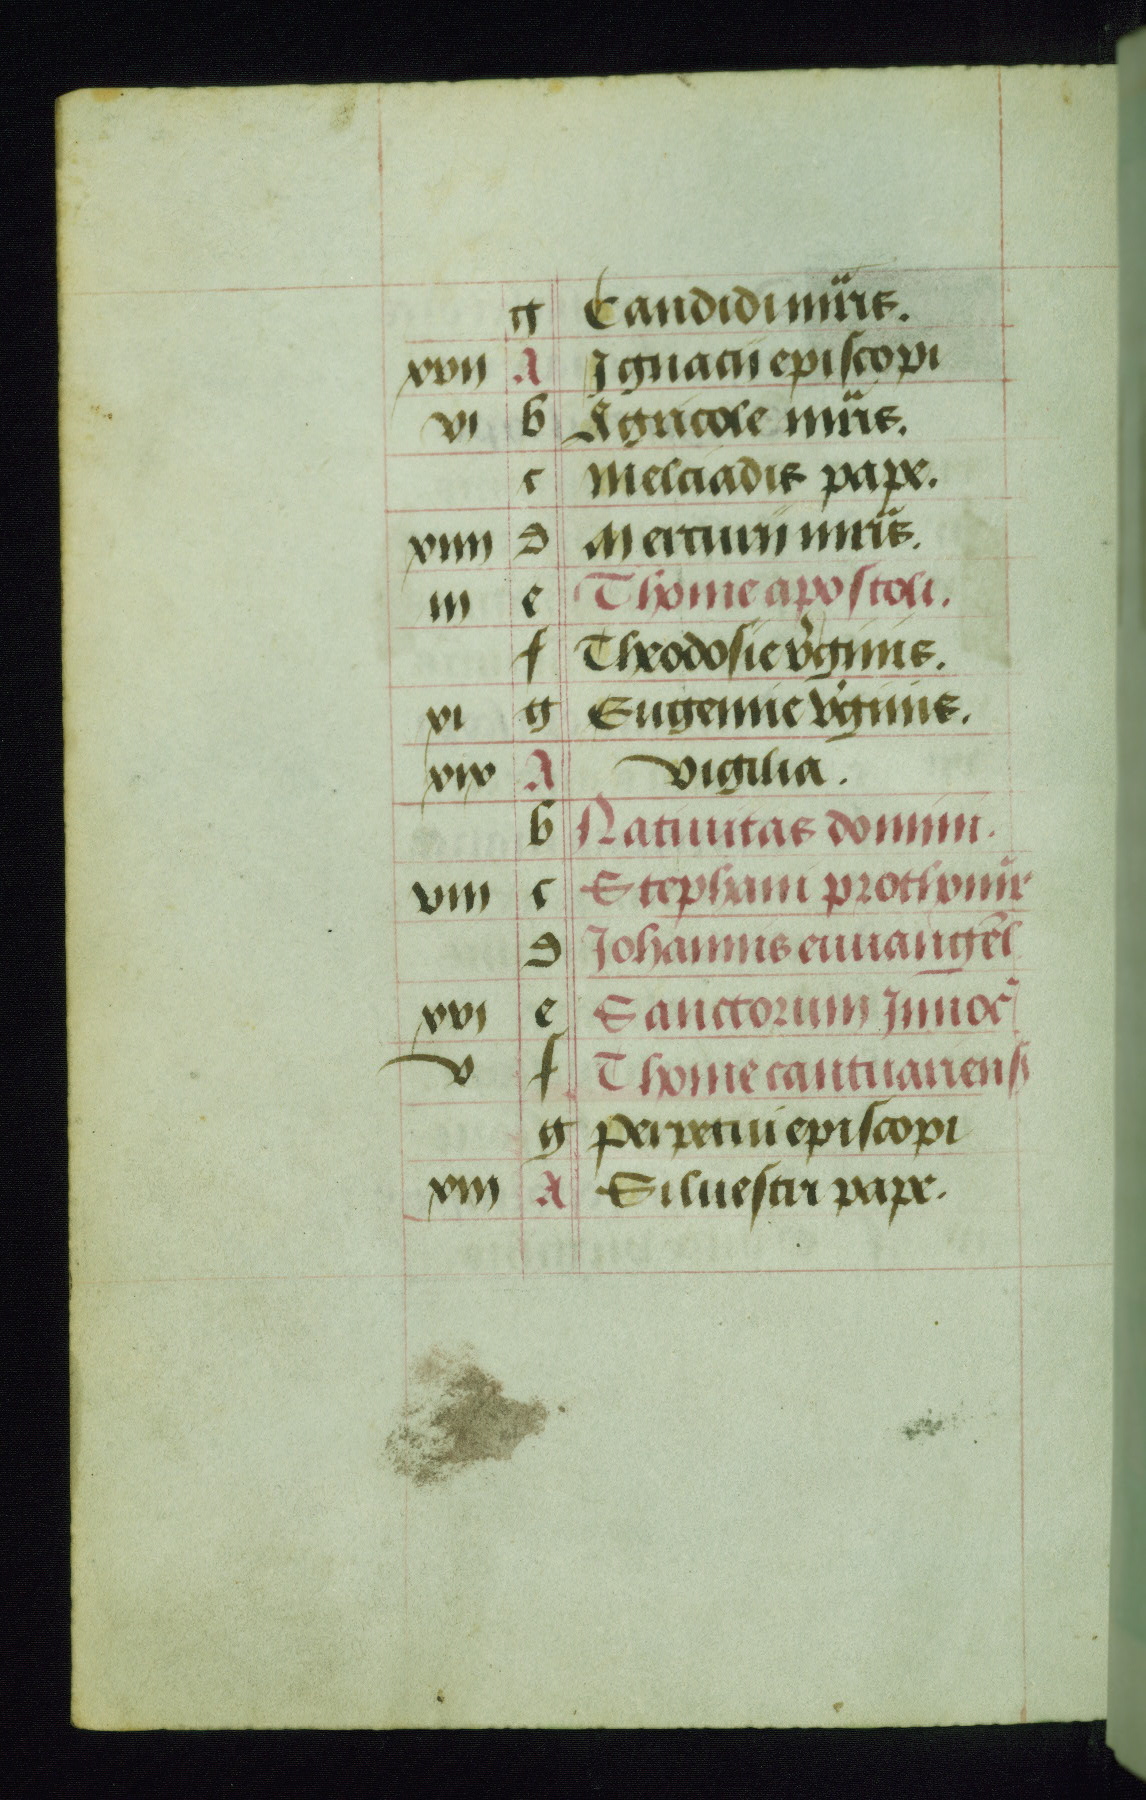 g Candidi mr̃is.
xvii A Ignacii episcopi
vi b Agricole mr̃is.
c Melciadis pape.
xiiii d Mercurii mr̃is.
iii e Thome apostoli.
f Theodosie v̓ginis.
xi g Eugenie v̓ginis.
xix A vigilia.
b Natiuitas domini.
viii c Stephani prothomr̃
d Johannis euuangel̃
xvi e Sanctorum Innoc̃
v f Thome cantuariens
g perpetui episcopi
xiii A Siluestri pape.